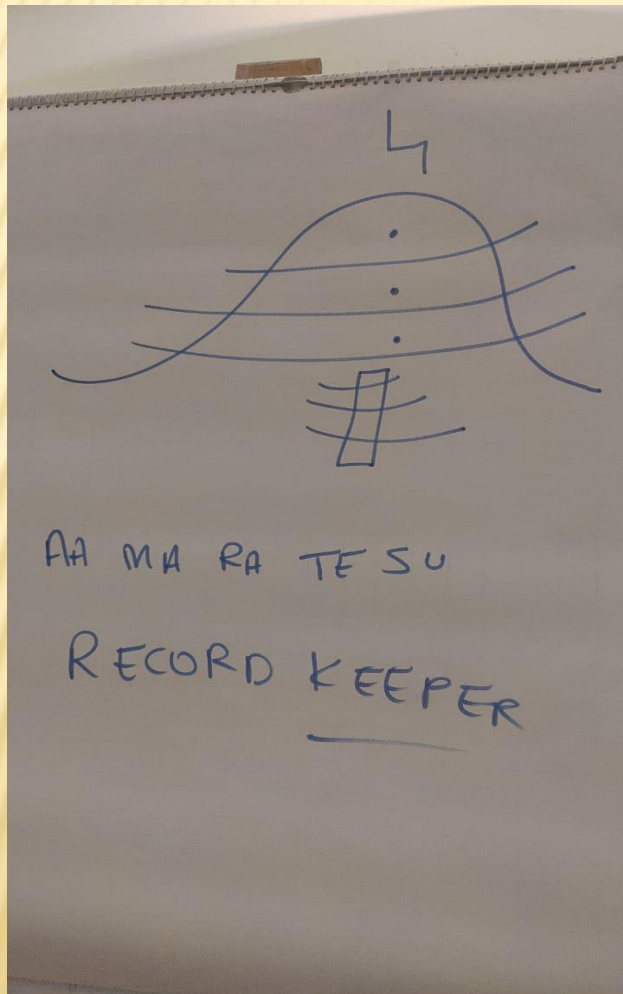 AA MA RA TE SU
RECORD KEEPER